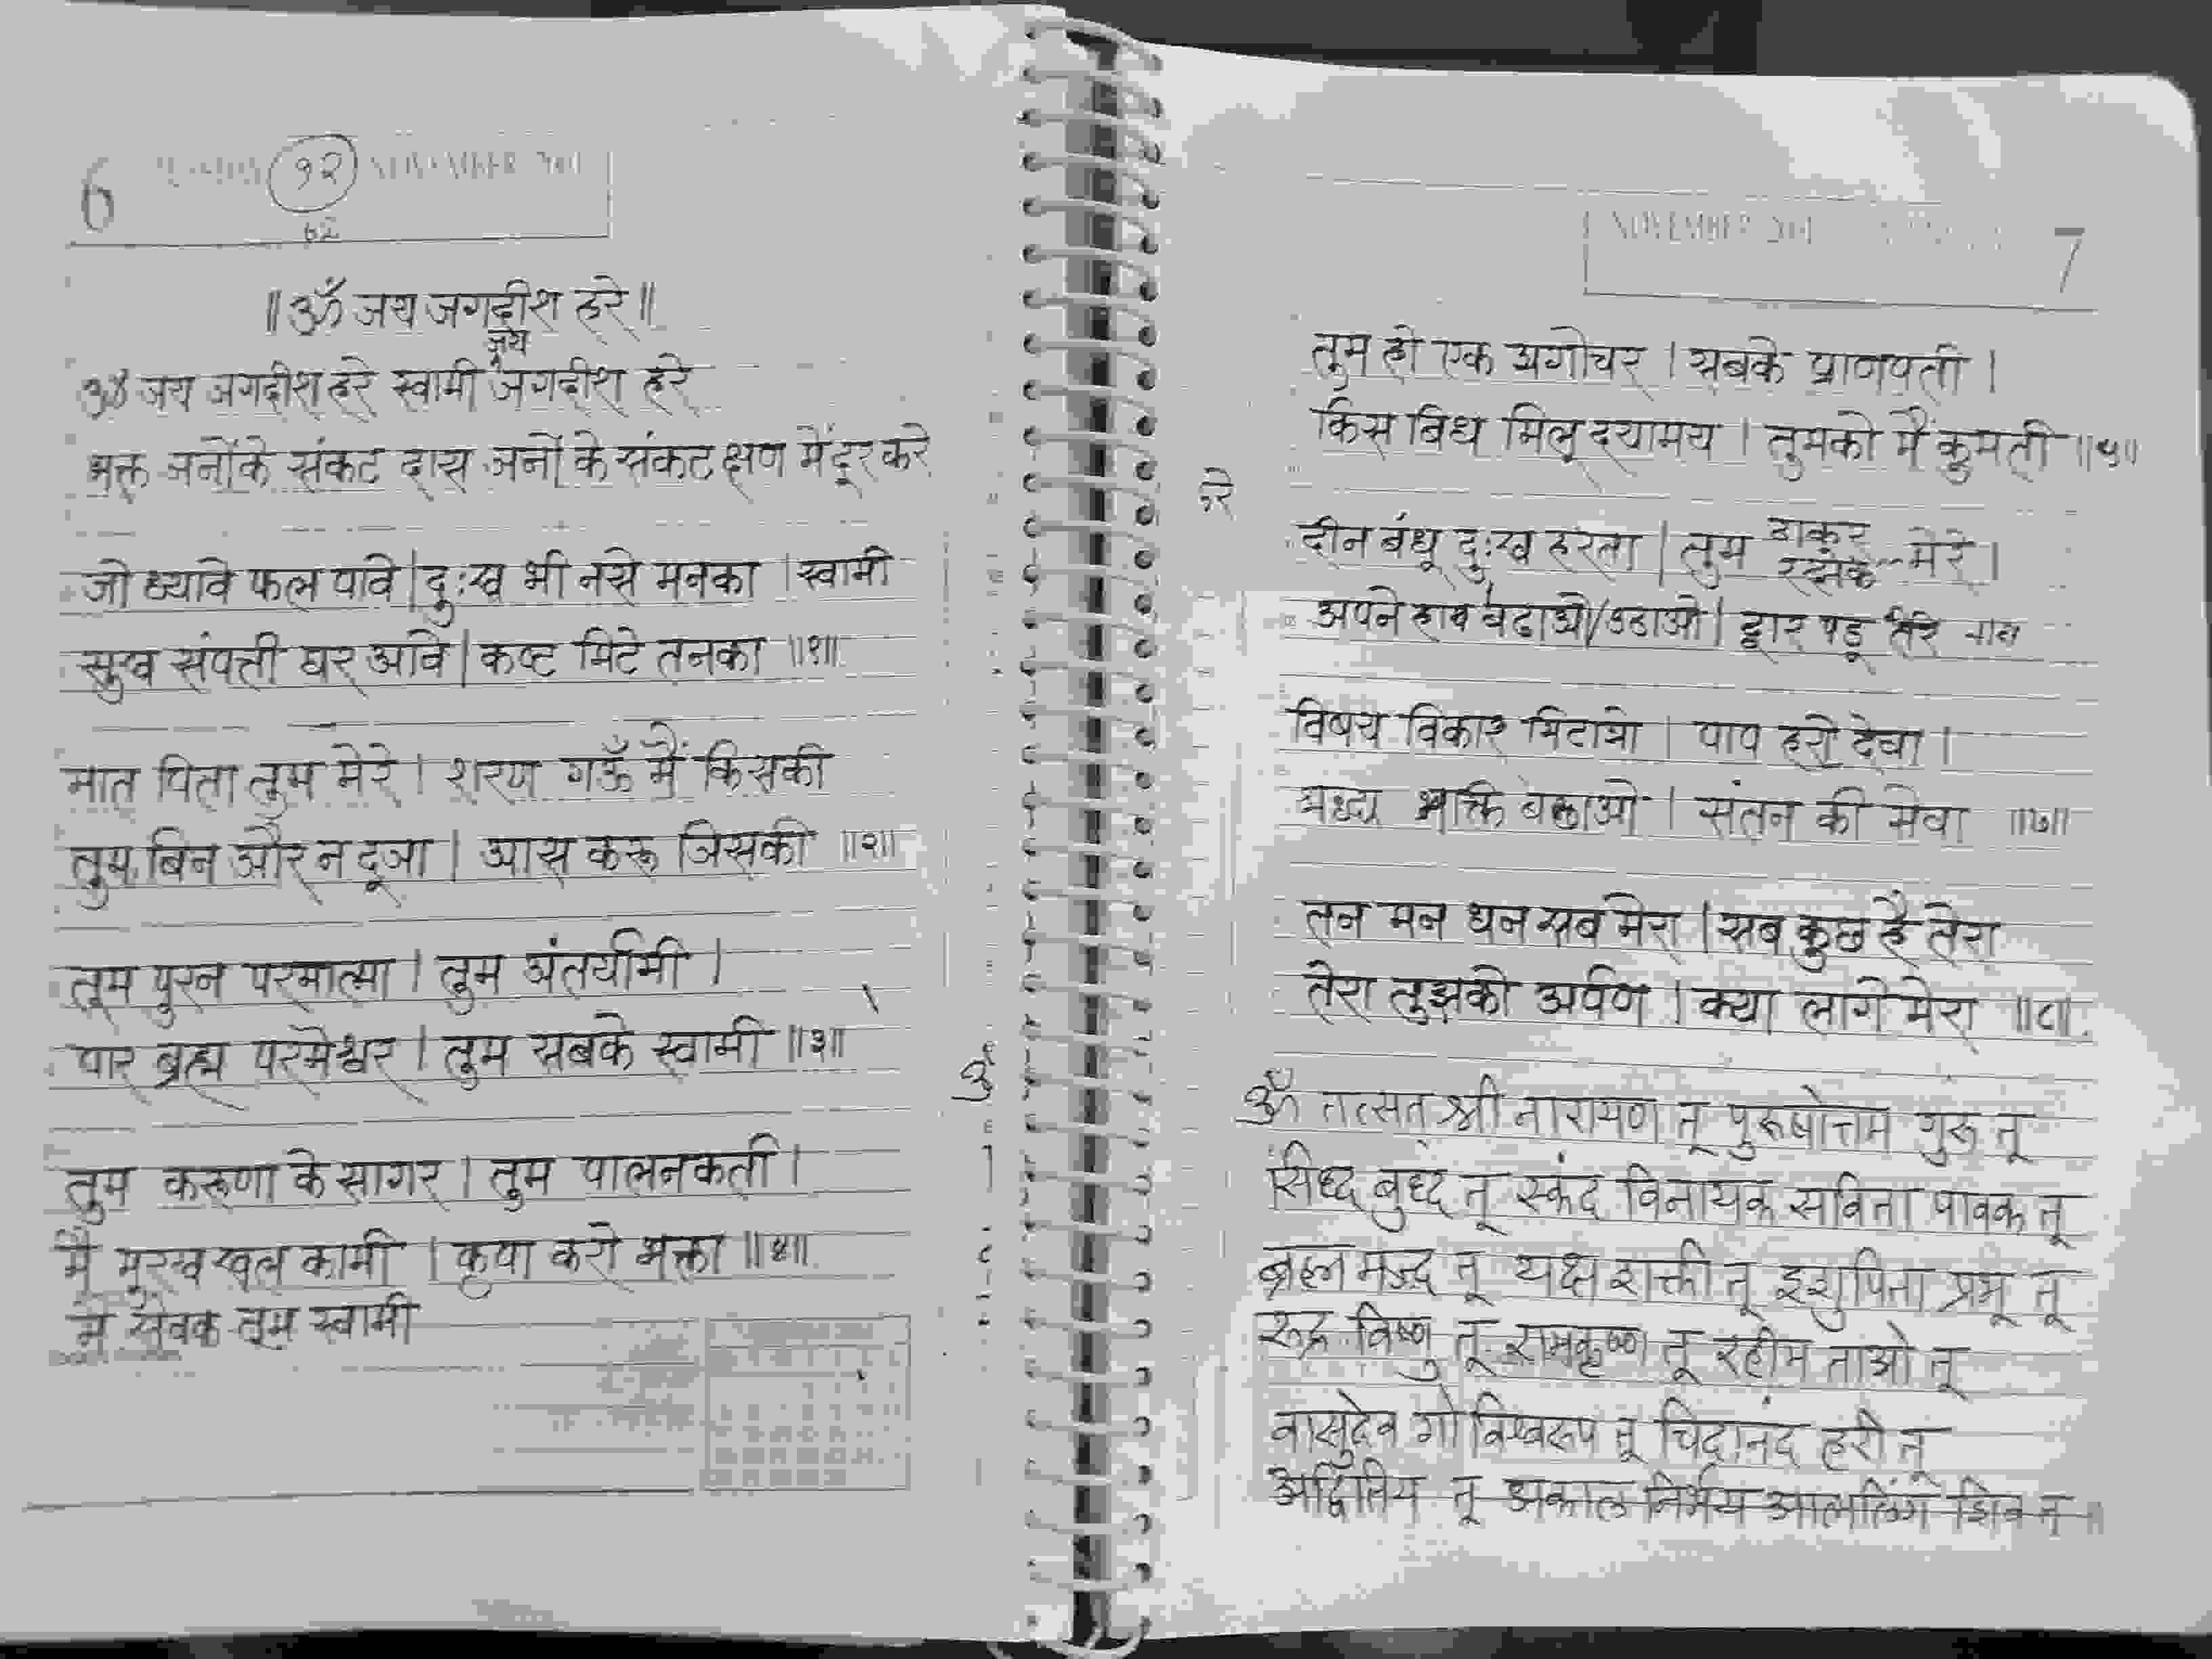 6
१२
६२
NOVEMBER
॥ॐ जय जगदीश हरे॥
जय
ॐ जय जगदीश हरे स्वामी जगदीश हरे
भक्त जनोंके संकट दास जनों के संकट क्षण में दूर करे
जो ध्यावे फल पावे | दुःख भी नसे मनका | स्वामी
सुख संपत्ती घर आवे | कष्ट मिटे तनका ॥१॥
मात पिता तुम मेरे | शरण गऊँ मैं किसकी
तुम बिन और न दूजा | आस करू जिसकी ॥२॥
तुम पुरन परमात्मा | तुम अंतर्यामी |
पार ब्रह्म परमेश्वर | तुम सबके स्वामी ॥३॥
ॐ
तुम करूणा के सागर | तुम पालनकर्ता |
मैं मुरख खल कामी | कृपा करो भक्ता ॥४॥
मैं सेवक तुम स्वामी
NOVEMBER
7
तुम हो एक अगोचर | सबके प्राणपती |
किस बिध मिलू दयामय | तुमको मैं कुमती ॥५॥
रे
दीन बंधू दुःख हरता | तुम ठाकुर मेरे |
रक्षक
अपने हाथ बढाओ/उठाओ | द्वार पडू तेरे
विषय विकार मिटाओ | पाप हरो देवा |
श्रध्दा भक्ति बढाओ | संतन की सेवा ॥७॥
तन मन धन सब मेरा | सब कुछ है तेरा
तेरा तुझको अर्पण | क्या लागे मेरा ॥८॥
ॐ तत्सत् श्री नारायण तू पुरूषोत्तम गुरू तू
सिध्द बुध्द तू स्कंद विनायक सविता पावक तू
ब्रह्म मज्द तू यक्ष शक्ती तू इशुपिता प्रभू तू
रूद्र विष्णु तू रामकृष्ण तू रहीम ताओ तू
वासुदेव गो विश्वरूप तू चिदानंद हरी तू
अद्वितिय तू अकाल निर्भय आत्मलिंग शिव तू ॥